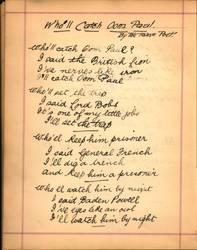 Who'll Catch Oom Paul.
By the Town Poet
Who'll catch Oom Paul?
I said the British Lion
I've nerves like iron
I'll catch Oom Paul
Who'll set the trap
I said Lord Bobs
It's one of my little jobs
I'll set the trap
Who'll keep him prisoner
I said General French
I'll dig a trench
and keep him a prisoner
Who'll watch him by night
I said Baden Powell
I've eyes like an owl
I'll watch him by night